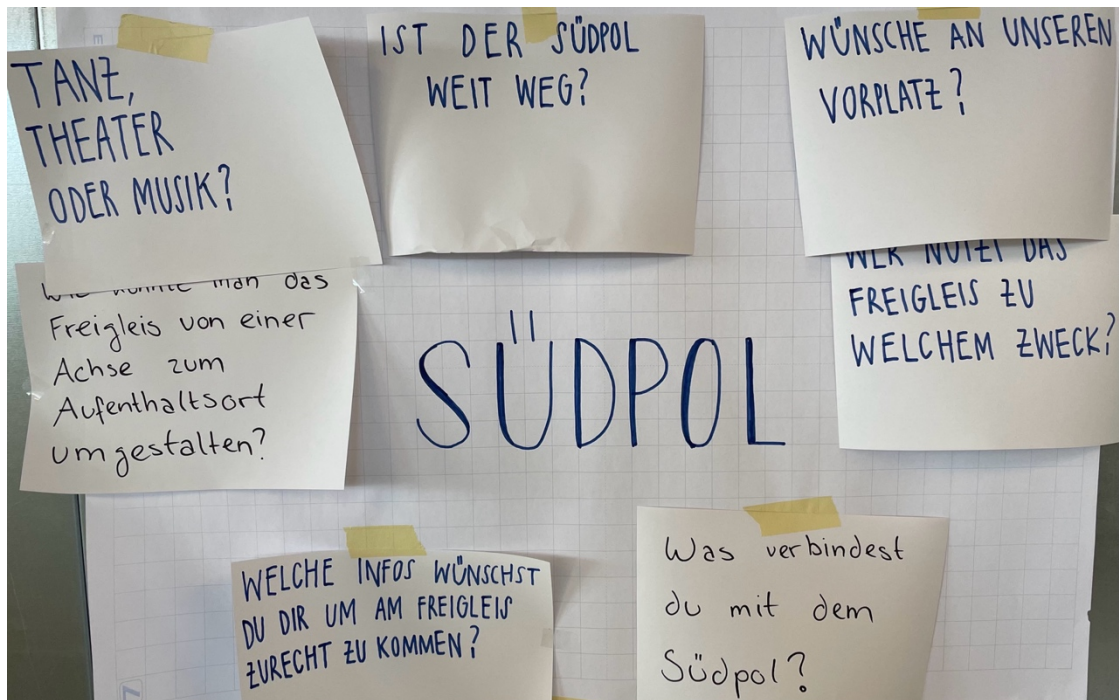 TANZ,
THEATER
ODER MUSIK?
IST DER SÜDPOL
WEIT WEG?
WÜNSCHE AN UNSEREN
VORPLATZ?
Wie könnte man das
Freigleis von einer
Achse zum
Aufenthaltsort
umgestalten?
SÜDPOL
WER NUTZT DAS
FREIGLEIS ZU
WELCHEM ZWECK?
WELCHE INFOS WÜNSCHST
DU DIR UM AM FREIGLEIS
ZURECHT ZU KOMMEN?
Was verbindest
du mit dem
Südpol?